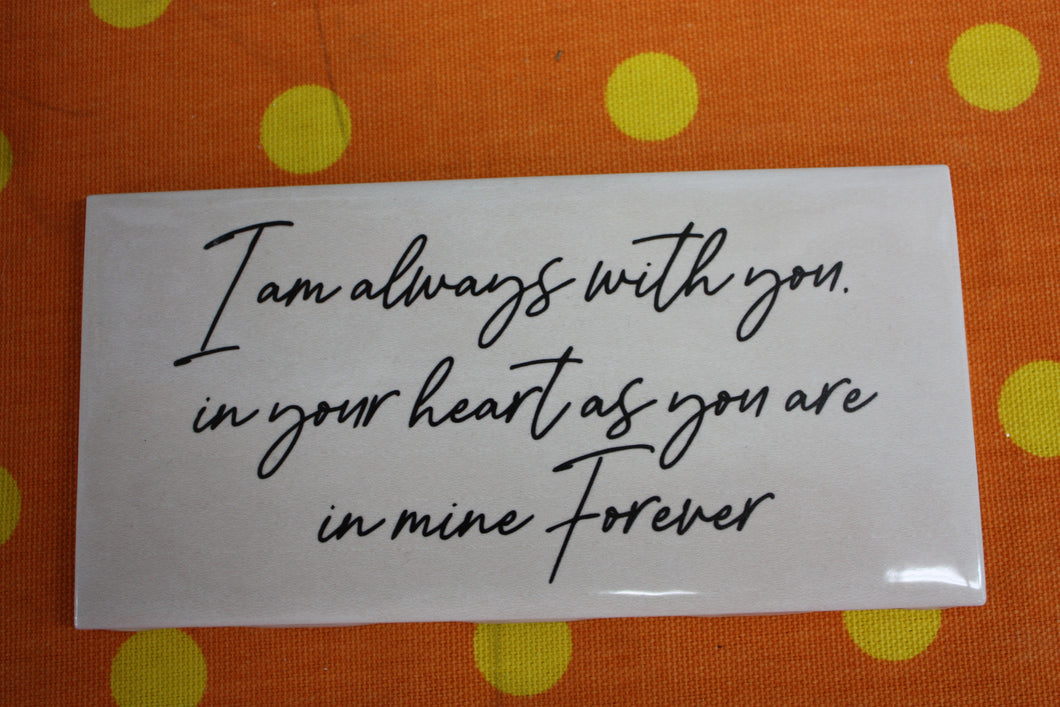 I am always with you.
in your heart as you are
in mine Forever